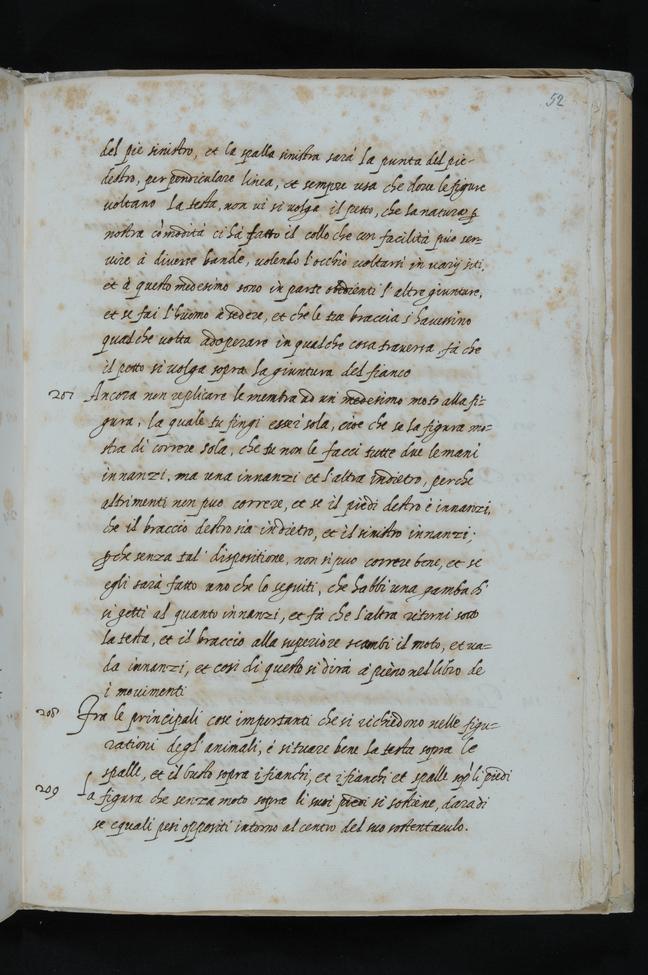 52
del pie sinistro, et la spalla sinistra sarà la punta del pie
destro, per pendiculare linea, et sempre usa che dove le figure
voltano la testa, non vi si volga il petto, che la natura p
nostra comodità ci hà fatto il collo che con facilità può ser=
vire à diverse bande, volendo l'occhio voltarsi in varij siti,
et à questo medesimo sono in parte obedienti l'altre giunture,
et se fai l'huomo à sedere, et che le sue braccia s'havessino
qualche volta adoperare in qualche cosa traversa, fà che
il petto si volga sopra la giuntura del fianco
207 Ancora non replicare le membra ad un medesimo moto alla fi=
gura, la quale tu fingi esser sola, cioè che se la figura mo=
stra di correre sola, che tu non le facci tutte due le mani
innanzi, ma una innanzi et l'altra indietro, perche
altrimenti non puo correre, et se il piedi destro è innanzi,
che il braccio destro sia indietro, et il sinistro innanzi;
pche senza tal' dispositione, non si puo correre bene, et se
egli sarà fatto uno che lo seguiti, che habbi una gamba ch
si getti al quanto innanzi, et fà che l'altra ritorni sotto
la testa, et il braccio alla superiore scambi il moto, et va=
da innanzi, et cosi di questo si dirà à pieno nel libro de
i movimenti
208 Fra le principali cose importanti che si richiedono nelle figu=
rationi degl'animali, è situare bene la testa sopra le
spalle, et il busto sopra i fianchi, et i fianchi et spalle sop' li piedi
209 La figura che senza moto sopra li suoi piedi si sostiene, darà di
se equali pesi oppositi intorno al centro del suo sostentaculo.